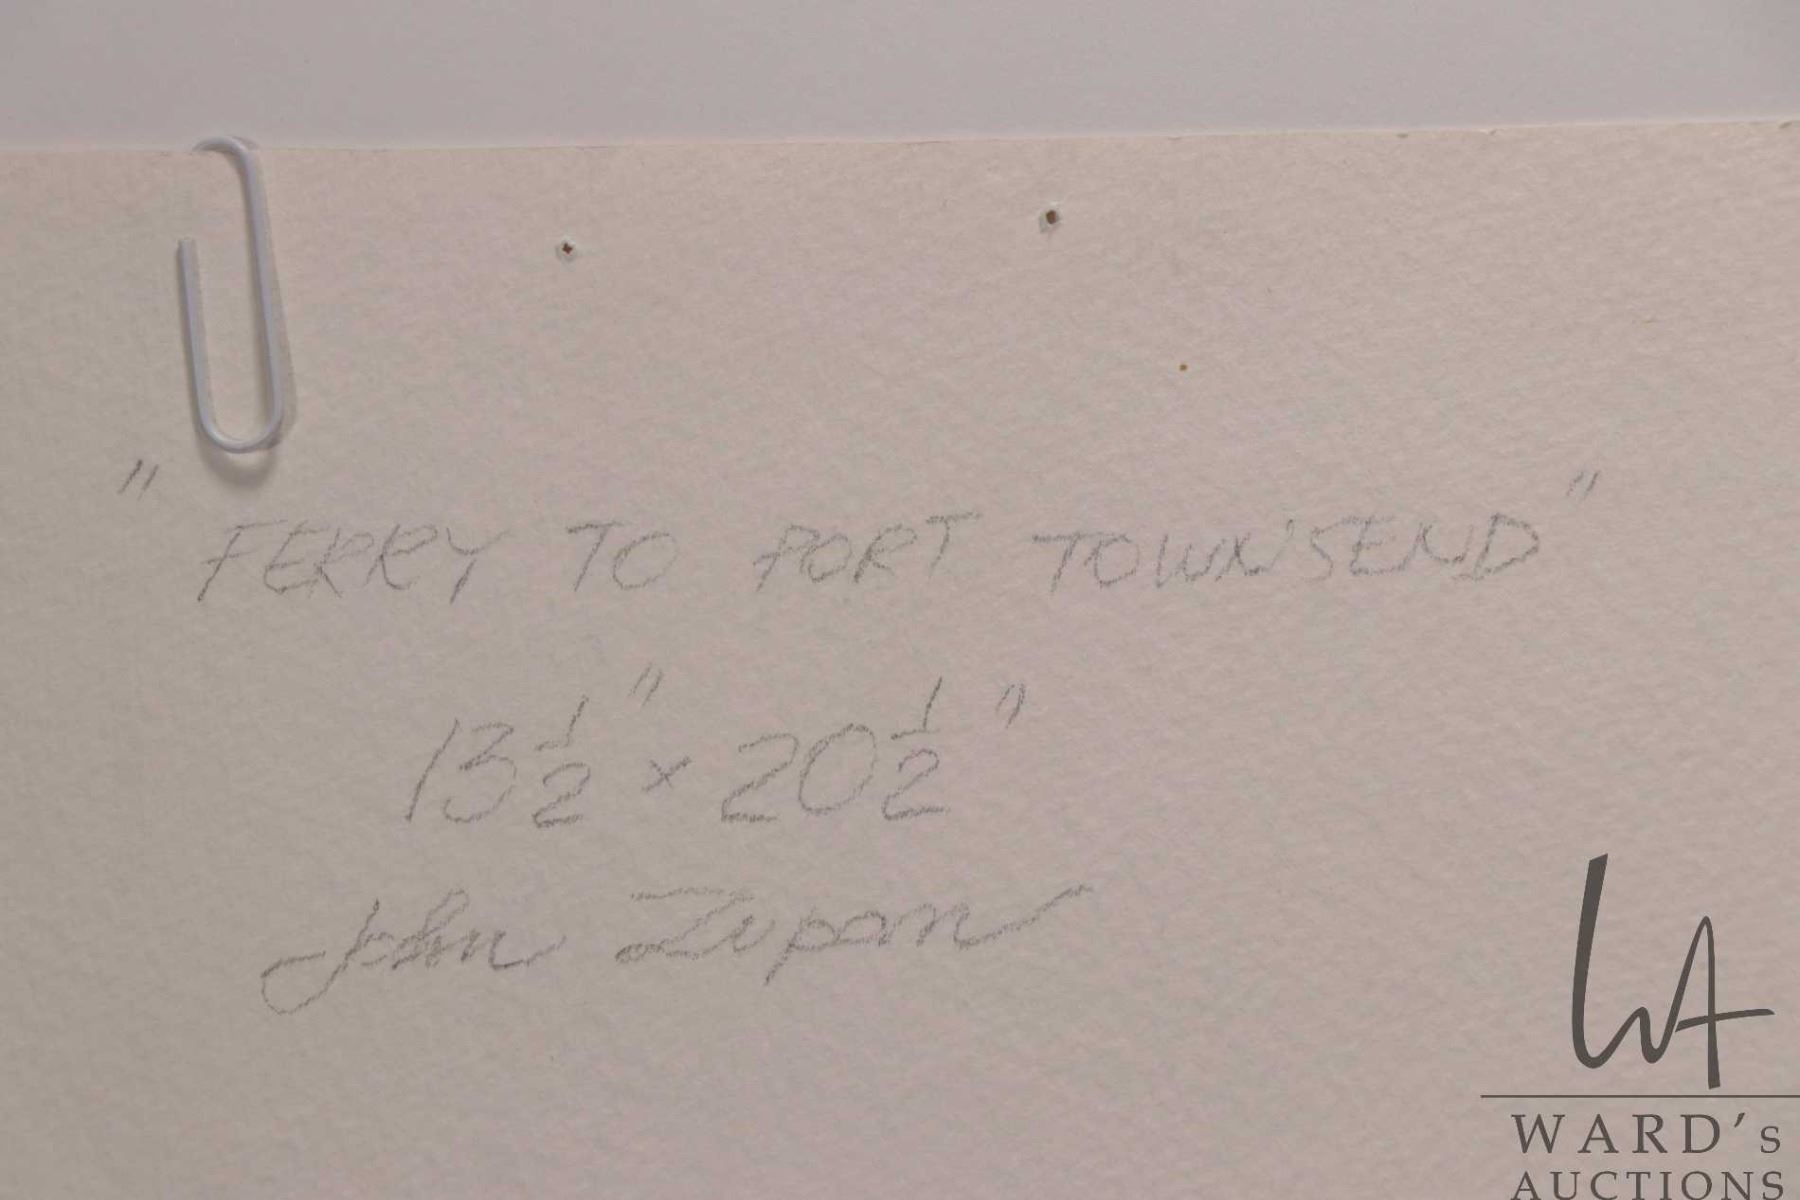 "FERRY TO PORT TOWN'SEND"
13 1/2" x 20 1/2"
John Zupan
WA
WARD's
AUCTIONS